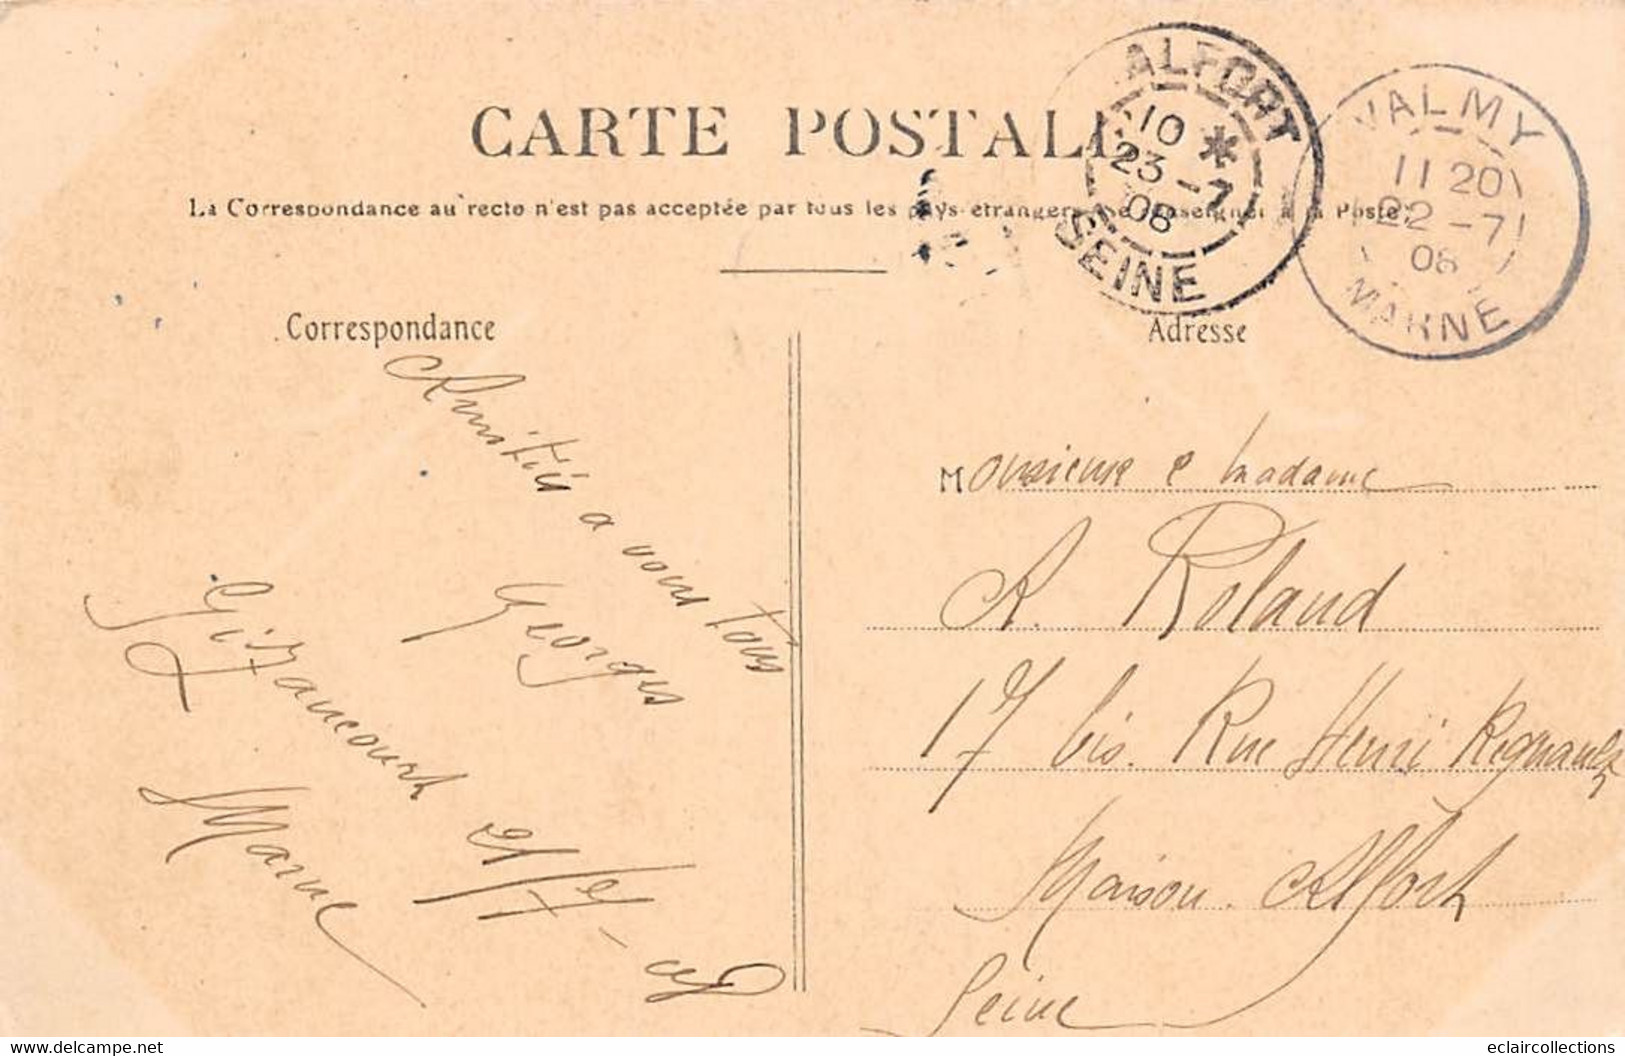 CARTE POSTALE
La Correspondance au recto n'est pas acceptée par tous les pays étrangers, Se renseigner à la Poste
ALFORT
10 *
23 -7
08
SEINE
VALMY
11 20
22 -7
08
MARNE
Correspondance
Adresse
Amitiés a vous tous
Georges
Gizaucourt
Marne
Monsieur e Madame
A. Roland
17 bis. Rue Henri Regnault
Maison. Alfort
Seine
delcampe.net
eclaircollections